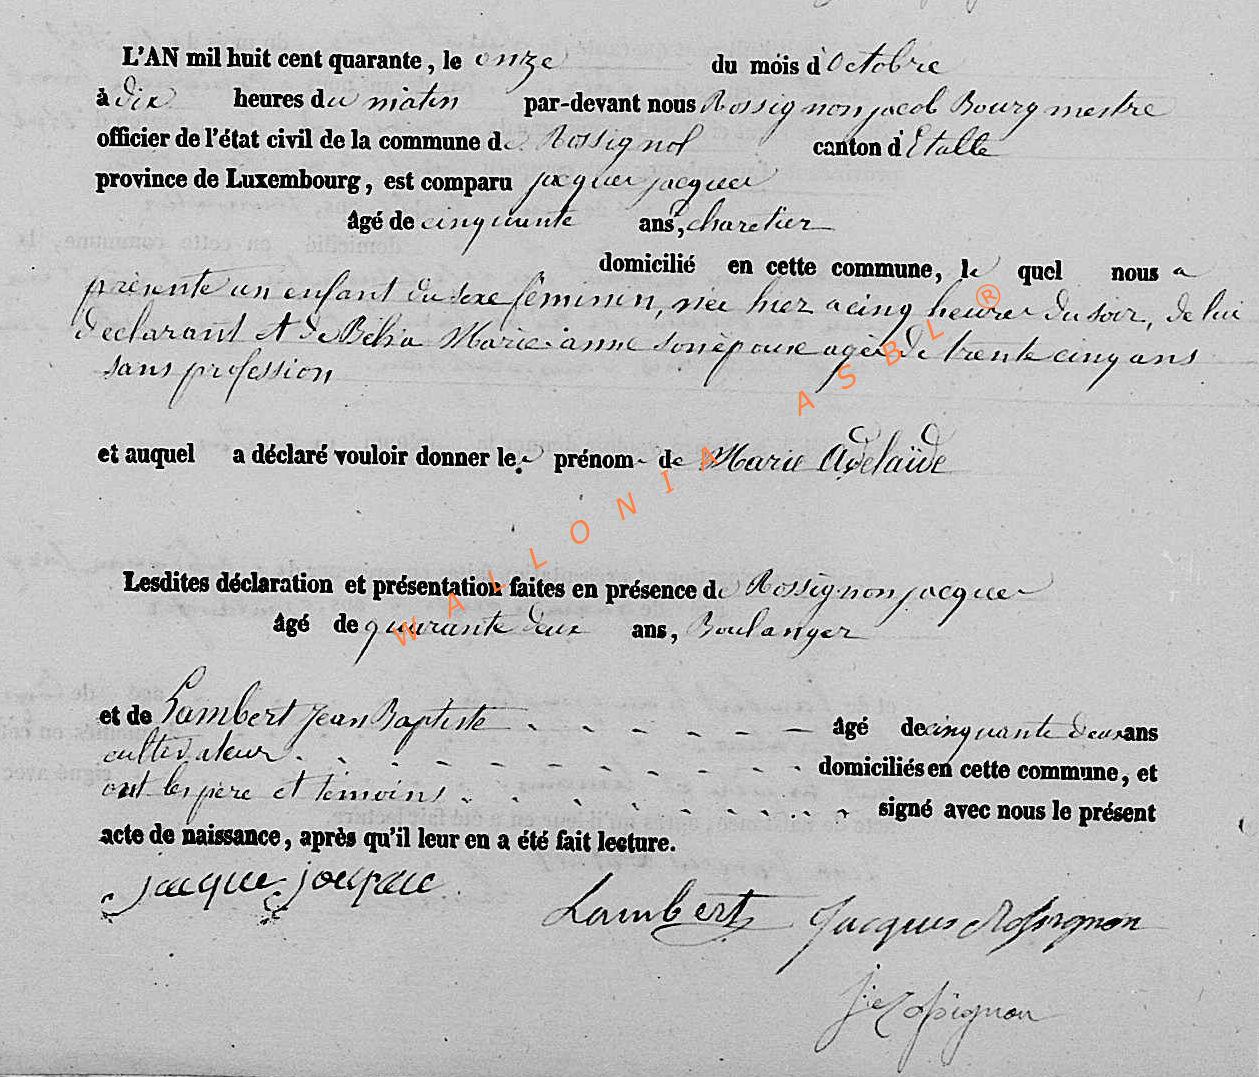 L'AN mil huit cent quarante, le onze du mois d'Octobre
à dix heures du matin par-devant nous Rossignon jacob Bourgmestre
officier de l'état civil de la commune de Rossignol canton d'Etalle
province de Luxembourg, est comparu jacques jacques
âgé de cinquante ans, charetier
domicilié en cette commune, le quel nous a
présenté un enfant du sexe féminin, née hier a cinq heures du soir, de lui
declarant et de Marie anne son épouse agée de trente cinq ans
sans profession
et auquel a déclaré vouloir donner le prénom de Marie Adelaïde
Lesdites déclaration et présentation faites en présence de Rossignon jacques
âgé de quarante deux ans, Boulanger
et de Lambert Jean Baptiste - - - - - - âgé de cinquante deux ans
cultivateur - - - - - - - - - - domiciliés en cette commune, et
ont les père et témoins - - - - - - - - - signé avec nous le présent
acte de naissance, après qu'il leur en a été fait lecture.
jacque
Lambert Jacques Rossignon
Rossignon
WALLONIA ASBL ®